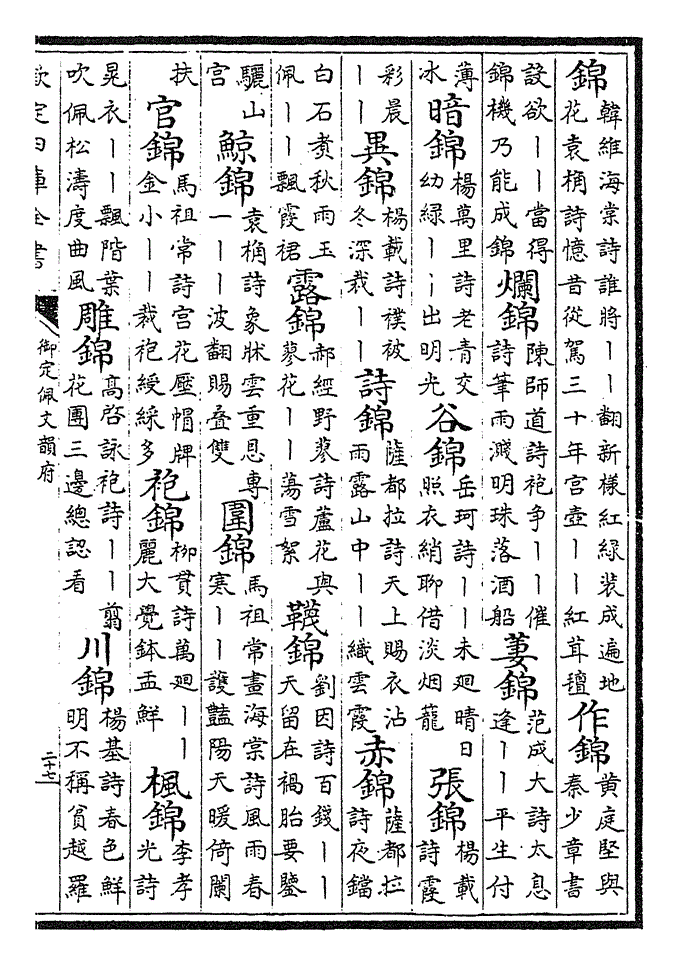 錦
韓維海棠詩誰將丨丨翻新樣紅緑裝成遍地
花袁桷詩憶昔從駕三十年宫壺丨丨紅茸氊
作錦
黄庭堅與
秦少章書
設欲丨丨當得
錦機乃能成錦
爛錦
陳師道詩袍争丨丨催
詩筆雨濺明珠落酒船
萋錦
范成大詩太息
逢丨丨平生付
薄
冰
暗錦
楊萬里詩老青交
幼緑丨丨出明光
谷錦
岳珂詩丨丨未廻晴日
照衣綃聊借淡烟籠
張錦
楊載
詩霞
彩晨
丨丨
異錦
楊載詩襆被
冬深裁丨丨
詩錦
薩都拉詩天上賜衣沾
雨露山中丨丨織雲霞
赤錦
薩都拉
詩夜鐺
白石煑秋雨玉
佩丨丨飄霞裙
露錦
郝經野蓼詩蘆花與
蓼花丨丨蕩雪絮
韈錦
劉因詩百錢丨丨
天留在禍胎要鑒
驪山
宫
鯨錦
袁桷詩象牀雲重恩專
一丨丨波翻賜叠雙
圍錦
馬祖常畫海棠詩風雨春
寒丨丨護豔陽天暖倚闌
扶
官錦
馬祖常詩宫花壓帽牌
金小丨丨裁袍綬綵多
袍錦
柳貫詩萬廻丨丨
麗大覺鉢盂鮮
楓錦
李孝
光詩
晃衣丨丨飄階葉
吹佩松濤度曲風
雕錦
高啓詠袍詩丨丨翦
花團三邊總認看
川錦
楊基詩春色鮮
明不稱貧越羅
欽定四庫全書
御定佩文韻府
二十七